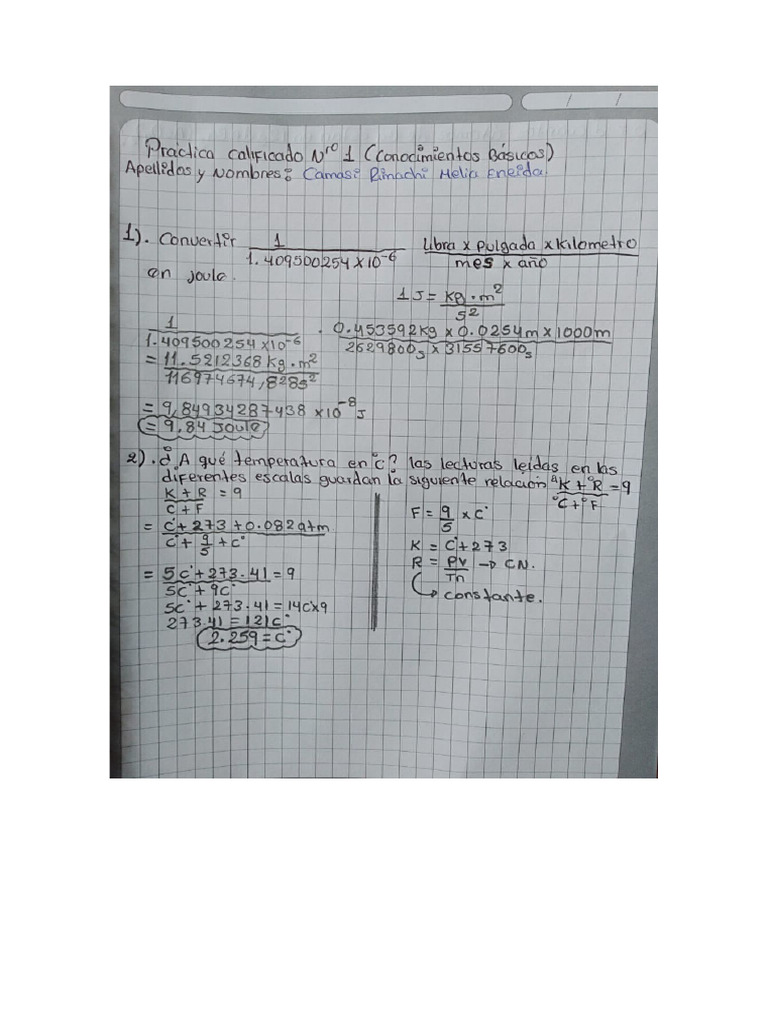 Practica calificado Nro 1 (Conocimientos Básicos)
Apellidos y Nombres: Camasi Rimachi Melia Eneida
1). Convertir 1 / 1.409500254 x 10^-6 libra x pulgada x kilometro / mes x año
en joule.
1 J = kg . m² / s²
1 / 1.409500254 x 10^-6 . 0.453592kg x 0.0254m x 1000m / 2629800s x 31557600s
= 11.5212368 kg . m² / 116974674,828s²
= 9,84934287438 x 10^-8 J
= 9,84 Joule
2). ¿ A qué temperatura en °C? las lecturas leidas en las
diferentes escalas guardan la siguiente relación °K + °R / °C + °F = 9
K + R / C + F = 9
= C° + 273 + 0.082atm / C° + 9/5 + C°
= 5C° + 273.41 / 5C° + 9C° = 9
5C° + 273.41 = 14C x 9
273.41 = 121C°
2.259 = C°
F = 9/5 x C°
K = C° + 273
R = PV / Tn → CN.
↳ constante.